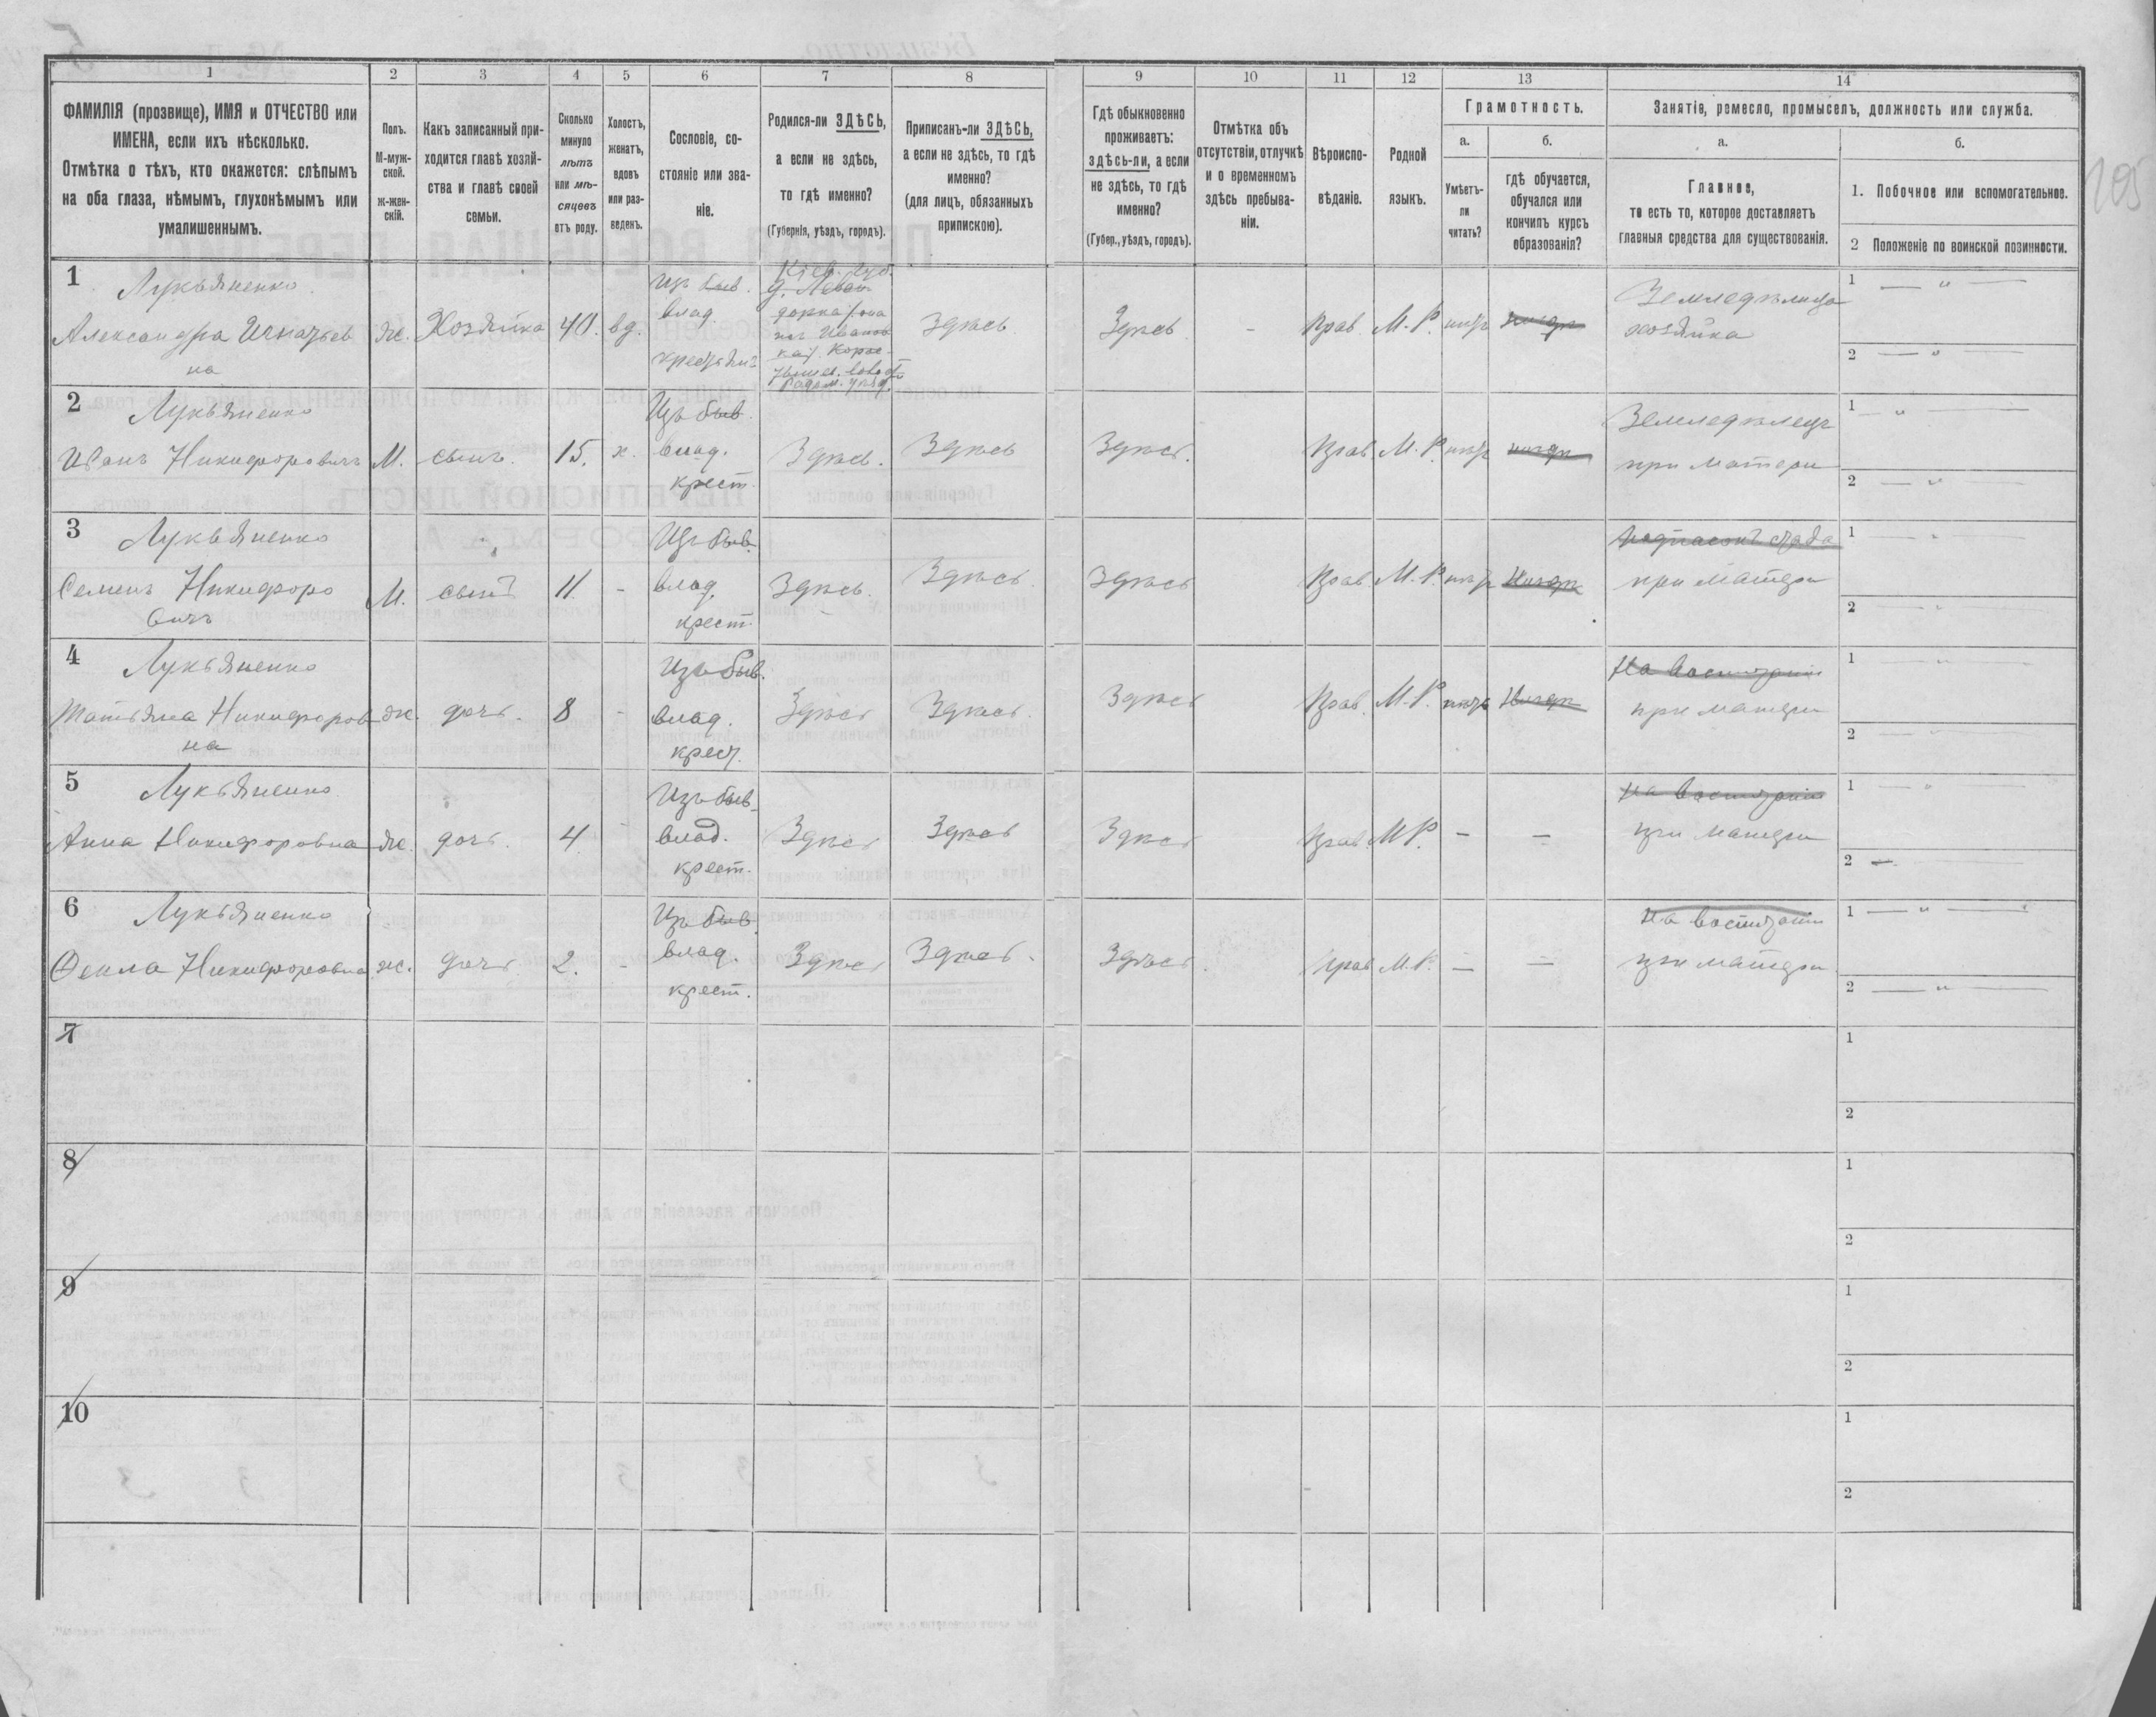 1 2 3 4 5 6 7 8 9 10 11 12 13 14
ФАМИЛІЯ (прозвище), ИМЯ и ОТЧЕСТВО или
ИМЕНА, если ихъ нѣсколько.
Отмѣтка о тѣхъ, кто окажется: слѣпымъ
на оба глаза, нѣмымъ, глухонѣмымъ или
умалишеннымъ.
Полъ.
М-муж-
ской.
ж-жен-
скій.
Какъ записанный при-
ходится главѣ хозяй-
ства и главѣ своей
семьи.
Сколько
минуло
лѣтъ
или мѣ-
сяцевъ
отъ роду.
Холостъ,
женатъ,
вдовъ
или раз-
веденъ.
Сословіе, со-
стояніе или зва-
ніе.
Родился-ли ЗДѢСЬ,
а если не здѣсь,
то гдѣ именно?
(Губернія, уѣздъ, городъ).
Приписанъ-ли ЗДѢСЬ,
а если не здѣсь, то гдѣ
именно?
(для лицъ, обязанныхъ
припискою).
Гдѣ обыкновенно
проживаетъ:
здѣсь-ли, а если
не здѣсь, то гдѣ
именно?
(Губер., уѣздъ, городъ).
Отмѣтка объ
отсутствіи, отлучкѣ
и о временномъ
здѣсь пребыва-
ніи.
Вѣроиспо-
вѣданіе.
Родной
языкъ.
Грамотность.
а.
Умѣетъ-
ли
читать?
б.
гдѣ обучается,
обучался или
кончилъ курсъ
образованія?
Занятіе, ремесло, промыселъ, должность или служба.
а.
Главное,
то есть то, которое доставляетъ
главныя средства для существованія.
б.
1. Побочное или вспомогательное.
2 Положеніе по воинской повинности.
1 Лукьяненко
Александра Игнатьев
на
ж. Хозяйка 40. вд.
Изъ быв.
влад.
крестьянъ
Кіев. губ.
Здѣсь Здѣсь - Прав. М.Р. нѣтъ нигдѣ
Земледѣлица
хозяйка
1 — " —
2 — " —
2 Лукьяненко
Иванъ Никифоровичъ М. сынъ. 15. х.
Изъ быв.
влад.
крест.
Здѣсь. Здѣсь Здѣсь. Прав. М.Р. нѣтъ нигдѣ
Земледѣлецъ
при матери
1 — " —
2 — " —
3 Лукьяненко
Семенъ Никифоро
вичъ
М. сынъ 11 -
Изъ быв.
влад.
крест.
Здѣсь. Здѣсь. Здѣсь Прав. М.Р. нѣтъ Нигдѣ
подпасокъ стада
при матери
1 — " —
2 — " —
4 Лукьяненко
Татьяна Никифоров
на
ж. дочь. 8 -
Изъ быв.
влад.
крест.
Здѣсь Здѣсь. Здѣсь Прав. М.Р. нѣтъ Нигдѣ
На воспитаніи
при матери
1 — " —
2 — " —
5 Лукьяненко
Анна Никифоровна ж. дочь. 4 -
Изъ быв.
влад.
крест.
Здѣсь Здѣсь Здѣсь Прав. М.Р. — —
на воспитаніи
при матери
1 — " —
2 —
6 Лукьяненко
Фекла Никифоровна ж. дочь 2. -
Изъ быв.
влад.
крест.
Здѣсь Здѣсь. Здѣсь. Прав М.Р. — —
на воспитаніи
при матери
1 — " —
2 — " —
7
1
2
8
1
2
9
1
2
10
1
2